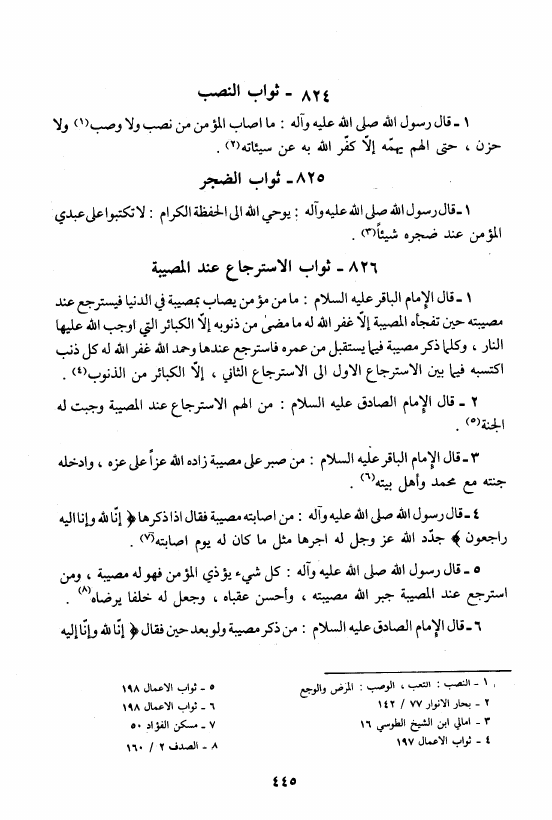 ٨٢٤ - ثواب النصب
١ - قال رسول الله صلى الله عليه وآله : ما اصاب المؤمن من نصب ولا وصب(١) ولا
حزن ، حتى الهم يهمّه إلّا كفّر الله به عن سيئاته(٢) .
٨٢٥ - ثواب الضجر
١ - قال رسول الله صلى الله عليه وآله : يوحي الله الى الحفظة الكرام : لا تكتبوا على عبدي
المؤمن عند ضجره شيئاً(٣) .
٨٢٦ - ثواب الاسترجاع عند المصيبة
١ - قال الإمام الباقر عليه السلام : ما من مؤمن يصاب بمصيبة في الدنيا فيسترجع عند
مصيبته حين تفجأه المصيبة إلّا غفر الله له ما مضىٰ من ذنوبه إلّا الكبائر التي اوجب الله عليها
النار ، وكلما ذكر مصيبة فيما يستقبل من عمره فاسترجع عندها وحمد الله غفر الله له كل ذنب
اكتسبه فيما بين الاسترجاع الاول الى الاسترجاع الثاني ، إلّا الكبائر من الذنوب(٤) .
٢ - قال الإمام الصادق عليه السلام : من الهم الاسترجاع عند المصيبة وجبت له
الجنة(٥) .
٣ - قال الإمام الباقر عليه السلام : من صبر على مصيبة زاده الله عزاً على عزه ، وادخله
جنته مع محمد وأهل بيته(٦) .
٤ - قال رسول الله صلى الله عليه وآله : من اصابته مصيبة فقال اذا ذكرها ﴿ إنّا لله وإنا اليه
راجعون ﴾ جدّد الله عز وجل له اجرها مثل ما كان له يوم اصابته(٧) .
٥ - قال رسول الله صلى الله عليه وآله : كل شيء يؤذي المؤمن فهو له مصيبة ، ومن
استرجع عند المصيبة جبر الله مصيبته ، وأحسن عقباه ، وجعل له خلفا يرضاه(٨) .
٦ - قال الإمام الصادق عليه السلام : من ذكر مصيبة ولو بعد حين فقال ﴿ إنّا لله وإنّا إليه
١ - النصب : التعب ، الوصب : المرض والوجع
٢ - بحار الانوار ٧٧ / ١٤٢
٣ - امالي ابن الشيخ الطوسي ١٦
٤ - ثواب الاعمال ١٩٧
٥ - ثواب الاعمال ١٩٨
٦ - ثواب الاعمال ١٩٨
٧ - مسكن الفؤاد ٥٠
٨ - الصدف ٢ / ١٦٠
٤٤٥